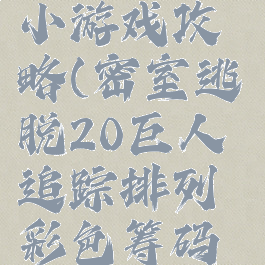 小游戏攻
略(密室逃
脱20巨人
追踪排列
彩色筹码